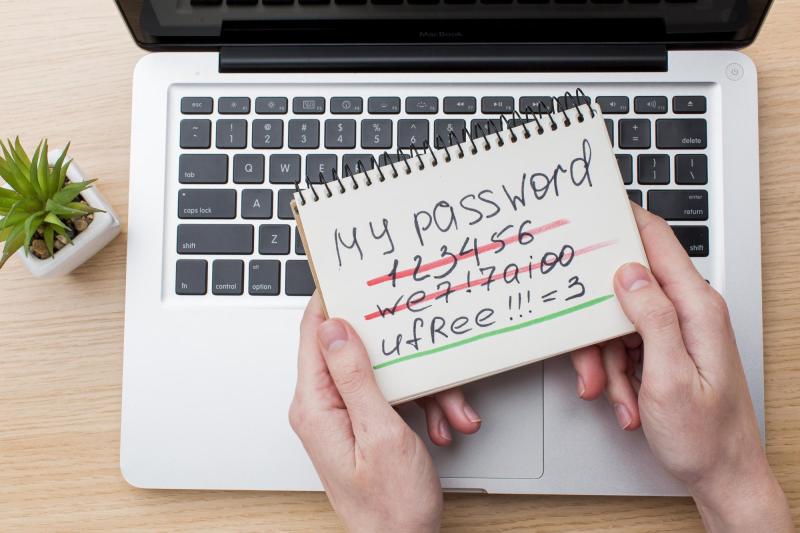 MacBook
esc
~ ! @ # $ % ^
` 1 2 3 4 5 6
+ =
delete
tab Q W E
} ]
| \
caps lock A
enter
return
shift Z
shift
fn control alt option
My password
123456
we7!7aioo
ufRee!!!=3